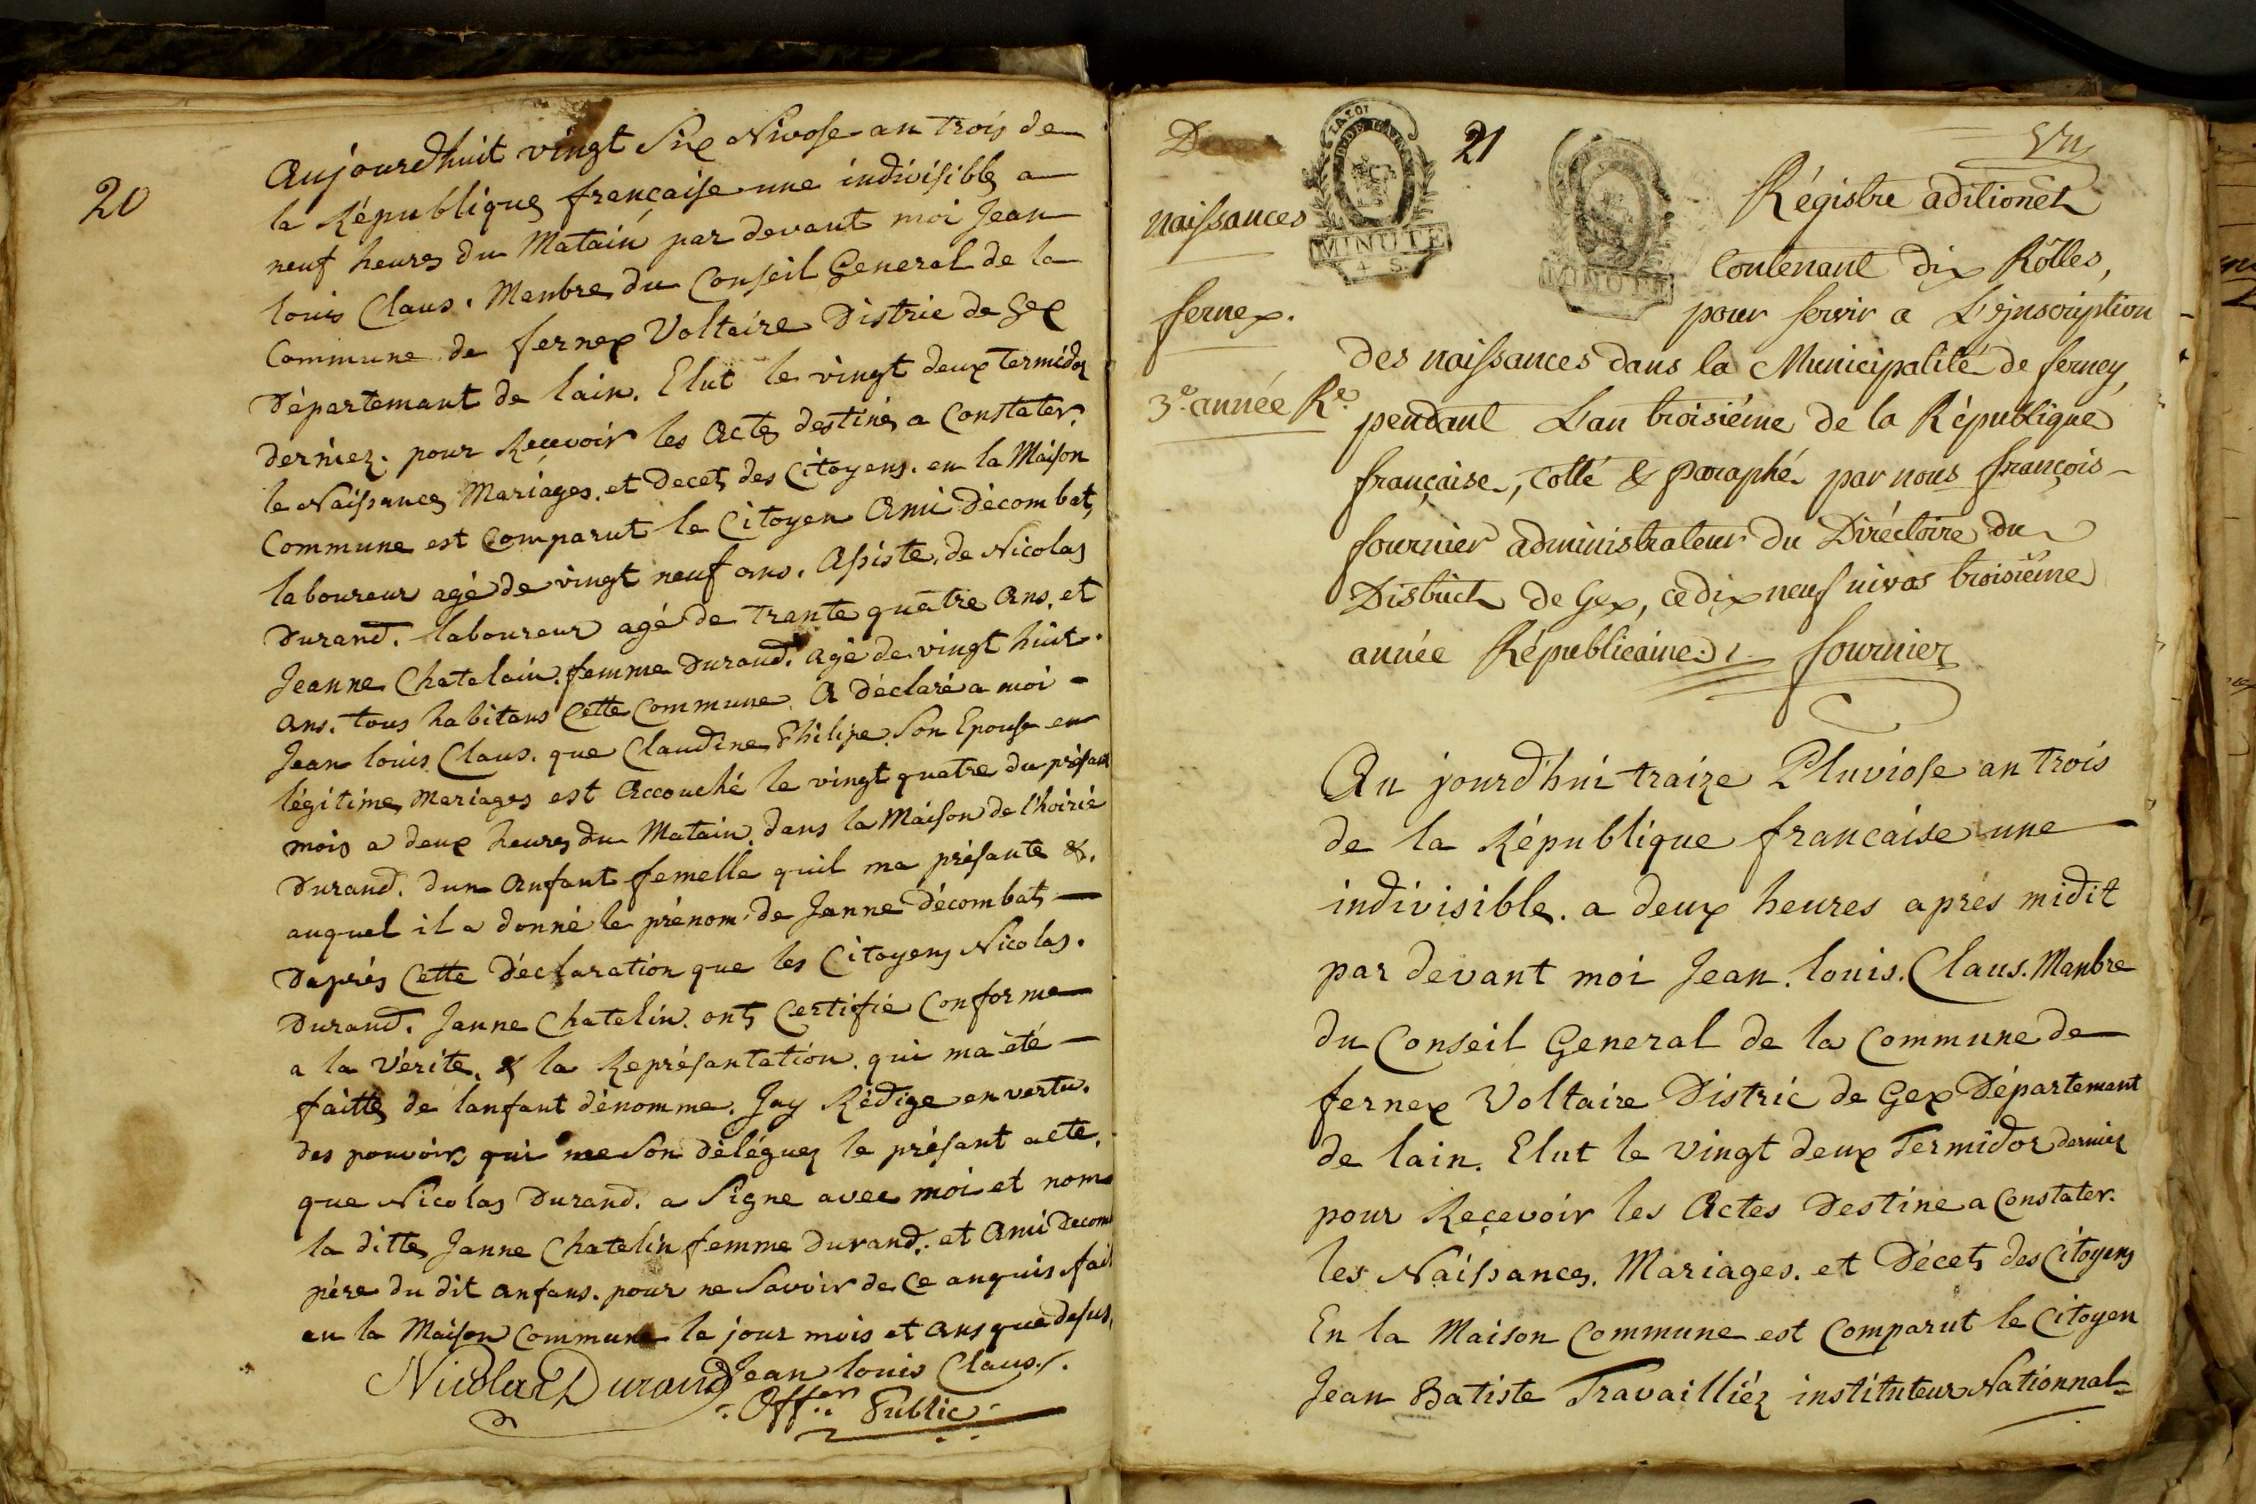 20
Aujourdhuit vingt Six Nivose an trois de
la République française une indivisible a
neuf heures du Matain par devant moi Jean
louis Claus. Menbre du Conseil General de la
Commune de fernex Voltaire Distric de Gex
Département de lain. Elut le vingt deux Termidor
dernier. pour Reçevoir les Actes destinés a Constater.
le Naissances Mariages. et Decets des Citoyens. en la Maison
Commune est Comparut le Citoyen Ami Décombat,
laboureur agé de vingt neuf ans. Assiste. de Nicolas
Durand. laboureur agé de trante quatre Ans. et
Jeanne Chatelain femme Durand. agé de vingt huit.
ans. tous habitans Cette Commune. A déclaré a moi
Jean louis Claus. que Claudine Philipe Son Epouse en
légitime Mariages est Accouché le vingt quatre du présant
mois a deux heures du Matain. dans la Maison de l'hoirié
Durand. dun Anfant femelle quil ma présante &.
auquel il a donné le prénom de Janne Décombats
Daprés Cette Déclaration que les Citoyens Nicolas.
Durand. Janne Chatelin. onts Certifié Conforme
a la Vérite. & la Représantation. qui ma été
faitte de lanfant dénomme. Jay Rédige en vertu.
des pouvoirs qui me Son déléguez le présant acte.
que Nicolas Durand. a Signe avec moi et nom
la ditte Janne Chatelin femme Durand. et Ami Decom
pére du dit anfans. pour ne Savoir de Ce anquis fait
en la Maison Commune le jour mois et ans que desus,
Nicolas Durand Jean louis Claus.
Offer Public
21
naissances
fernex.
3e. année Re.
MINUTE
4 S
MINUTE
Un
Régistre aditionel
Contenant dix Rolles,
pour servir a L'ynscription
des naissances dans la Municipalité de ferney,
pendant L'an troisiéme de la République
française, Cotté & paraphé par nous françois
fournier administrateur du Diréctoire du
District de Gex, ce dix neuf nivos troisième
année Républicaine. fournier
Au jourd'hui traize Pluviose an trois
de la République francaise une
indivisible. a deux heures aprés midit
par devant moi Jean. louis. Claus. Manbre
du Conseil General de la Commune de
fernex Voltaire Distric de Gex Département
de lain. Elut le Vingt deux Termidor dernier
pour Reçevoir les Actes Destiné a Constater.
les Naissances. Mariages. et Décets des Citoyens
En la Maison Commune est Comparut le Citoyen
Jean Batiste Travailliéz instituteur Nationnal